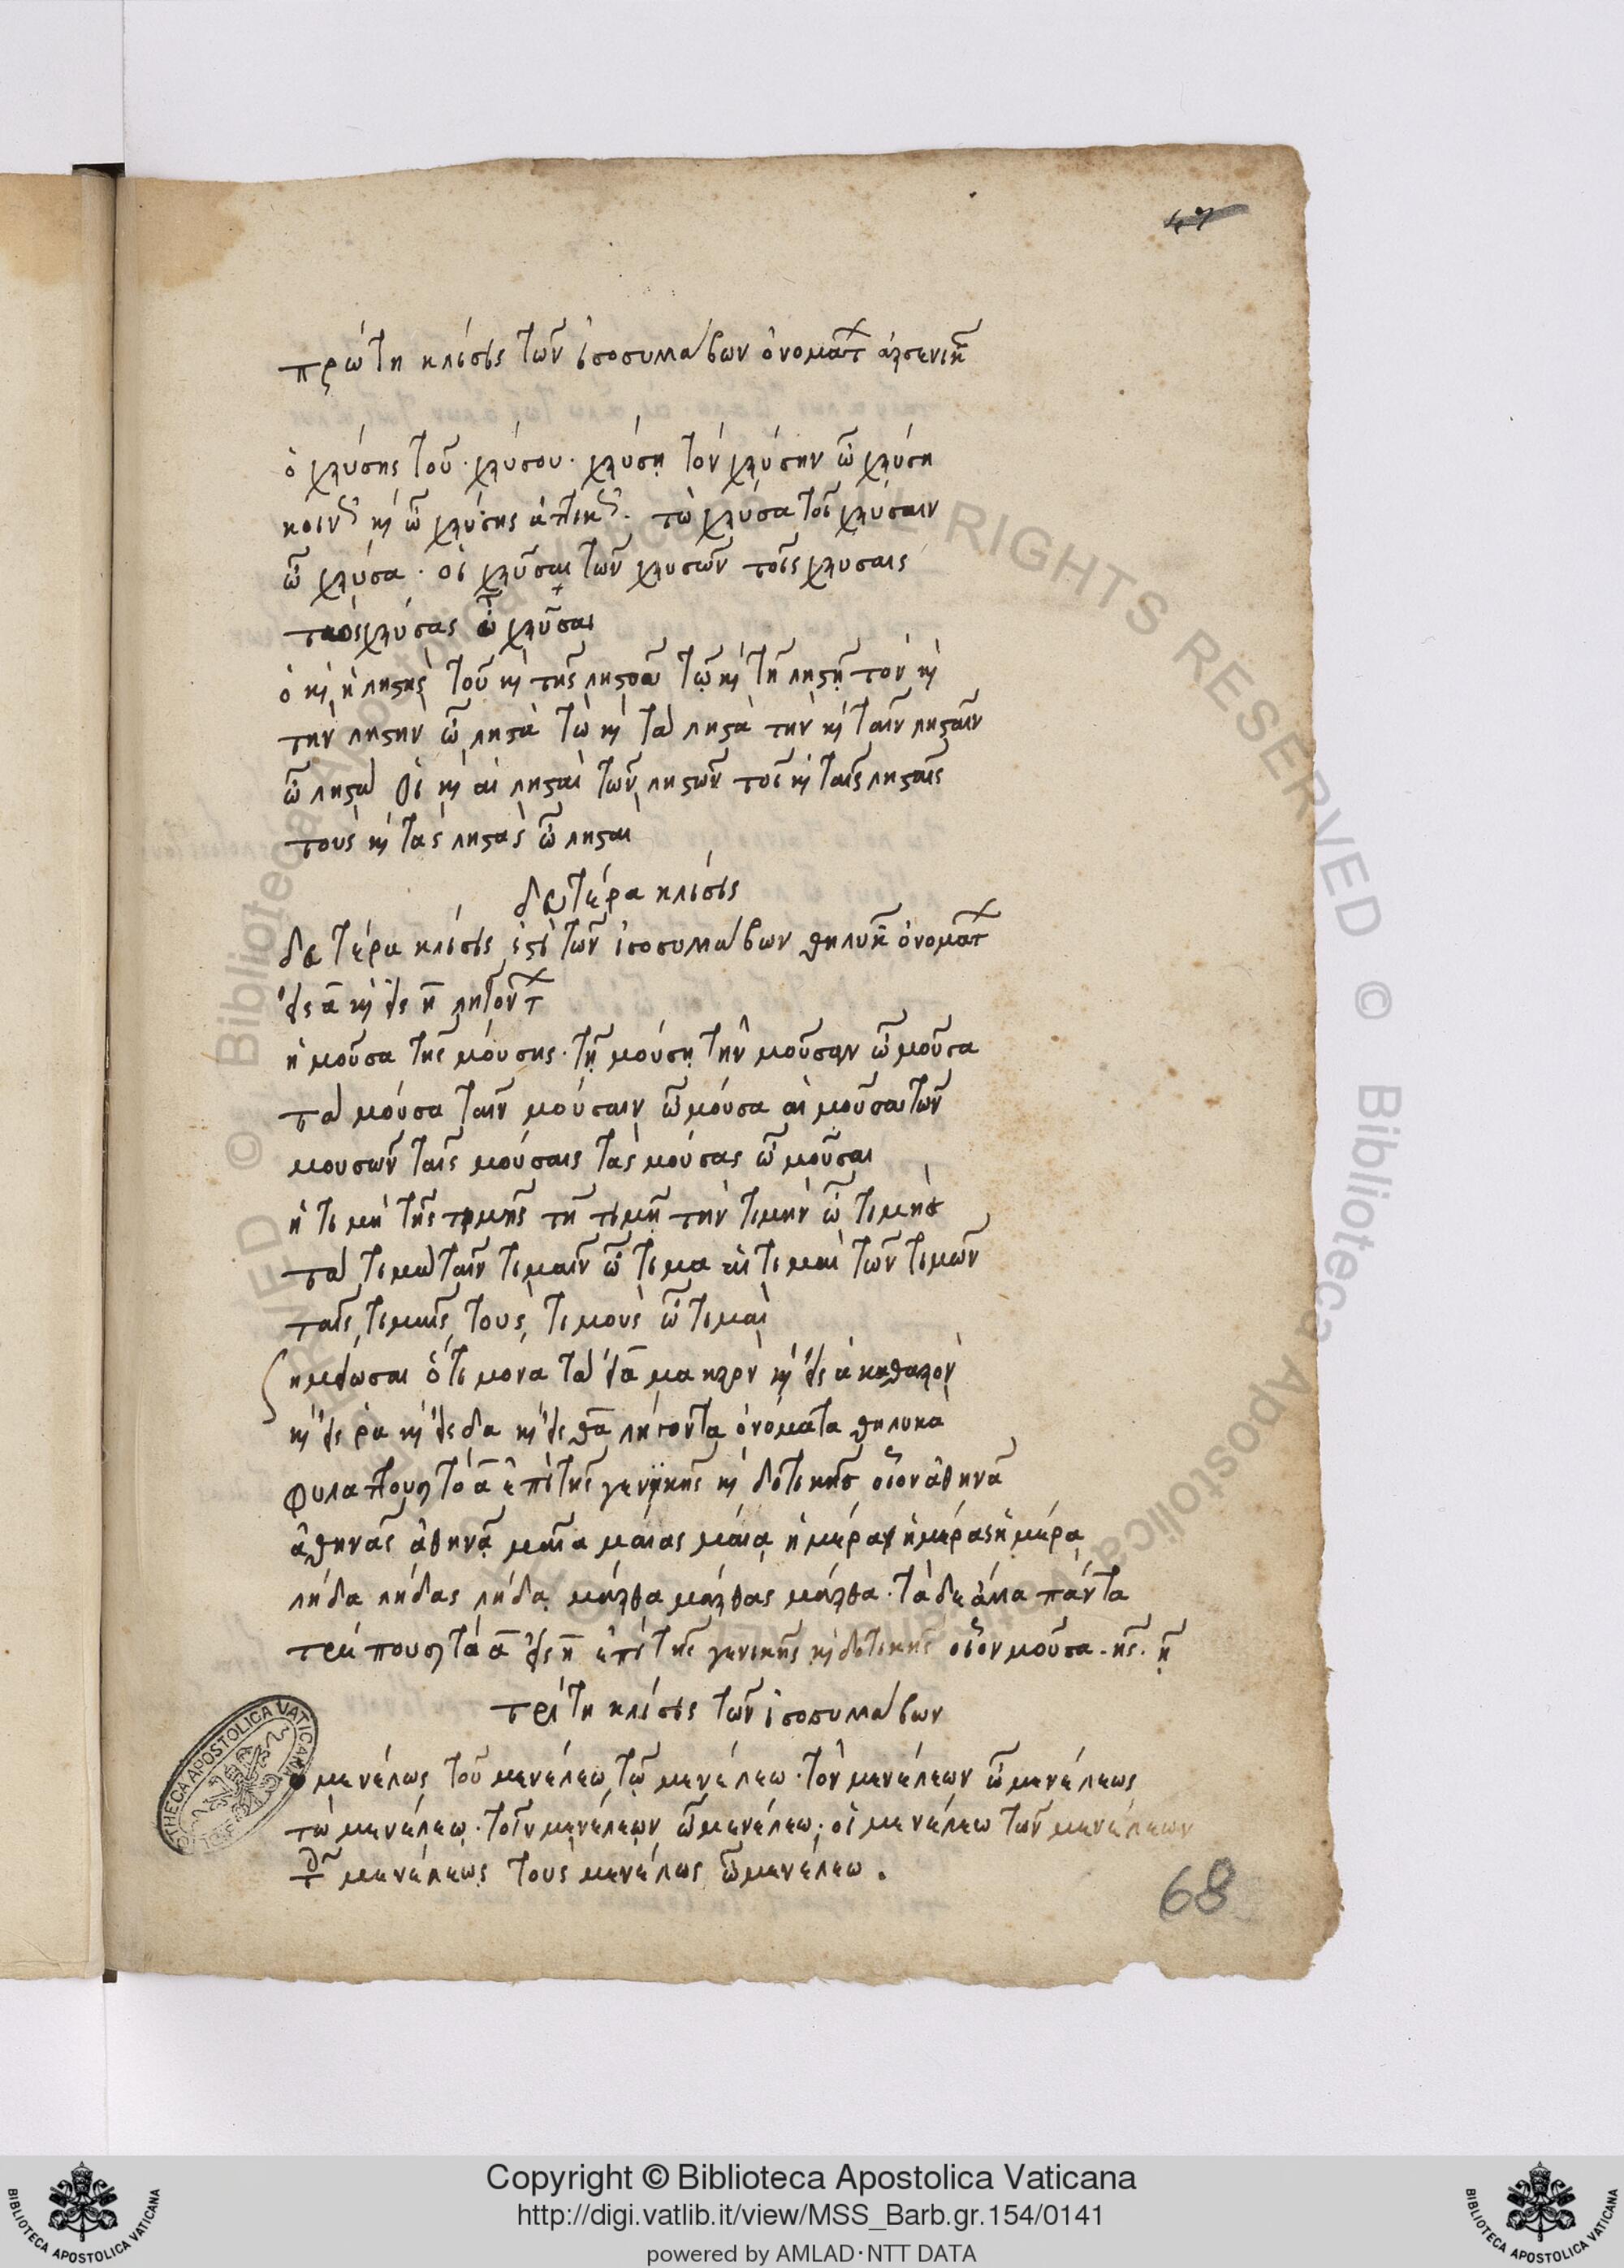 πρώτη κλίσις τῶν ἰσοσυλλάβων ὀνομάτ ἀρσενικ
ὁ χρύσης τοῦ · χρύσου · χρύσῃ τόν χρύσην ὦ χρύση
κοιν κὶ ὦ χρύσης ἀττικ · τὼ χρύσα τοῖ χρύσαιν
ὦ χρύσα · οἱ χρῦσαι τῶν χρυσῶν τοῖς χρυσαις
τοὺς χρύσας ὦ χρῦσαι
ὁ κὶ ἡ λῃστὴς τοῦ κὶ τῆς λῃστοῦ τῷ κὶ τῇ λῃστῇ τὸν κὶ
τὴν λῃστὴν ὦ λῃστὰ τὼ κὶ τὰ λῃστὰ τὴν κὶ ταῖν λῃσταῖν
ὦ λῃστὰ οἱ κὶ αἱ λῃσταὶ τῶν λῃστῶν τοῖς κὶ ταῖς λῃσταῖς
τοὺς κὶ τὰς λῃστὰς ὦ λῃσταὶ
δευτέρα κλίσις
δευτέρα κλίσις ἐστὶ τῶν ἰσοσυλλάβων θηλυκ ὀνομάτ
εἰς α κὶ εἰς η ληγόντ
ἡ μοῦσα τῆς μούσης · τῇ μούσῃ τὴν μοῦσαν ὦ μοῦσα
τὰ μούσα ταῖν μούσαιν ὦ μούσα αἱ μοῦσαι τῶν
μουσῶν ταῖς μούσαις τὰς μούσας ὦ μοῦσαι
ἡ τιμὴ τῆς τιμῆς τῇ τιμῇ τὴν τιμὴν ὦ τιμὴ
τὰ τιμὰ ταῖν τιμαῖν ὦ τιμα αἱ τιμαὶ τῶν τιμῶν
ταῖς τιμαῖς τοὺς τιμοὺς ὦ τιμαὶ
σημείωσαι ὅτι μόνα τὰ εἰς α μακρὸν κὶ εἰς α καθαρὸν
κὶ εἰς ρα κὶ εἰς δα κὶ εἰς θα λήγοντα ὀνόματα θηλυκὰ
φυλάττουσι τὸ α ἐπὶ τῆς γενικῆς κὶ δοτικῆς οἷον ἀθηνᾶ
ἀθηνᾶς ἀθηνᾷ μαῖα μαίας μαίᾳ ἡμέρα ἡμέρας ἡμέρᾳ
λήδα λήδας λήδᾳ μάρθα μάρθας μάρθᾳ · τὰ δὲ ἄλλα πάντα
τρέπουσι τὸ α εἰς η ἐπὶ τῆς γενικῆς κὶ δοτικῆς οἷον μοῦσα · ης · ῃ
τρίτη κλίσις τῶν ἰσοσυλλάβων
ὁ μενέλεως τοῦ μενέλεω τῷ μενέλεῳ · τὸν μενέλεων ὦ μενέλεως
τὼ μενέλεω · τοῖν μενέλεῳν ὦ μενέλεω · οἱ μενέλεῳ τῶν μενέλεων
τοῖς μενέλεῳς τοὺς μενέλεως ὦ μενέλεῳ .
68
BIBLIOTHECA APOSTOLICA VATICANA
Copyright © Biblioteca Apostolica Vaticana
http://digi.vatlib.it/view/MSS_Barb.gr.154/0141
powered by AMLAD·NTT DATA